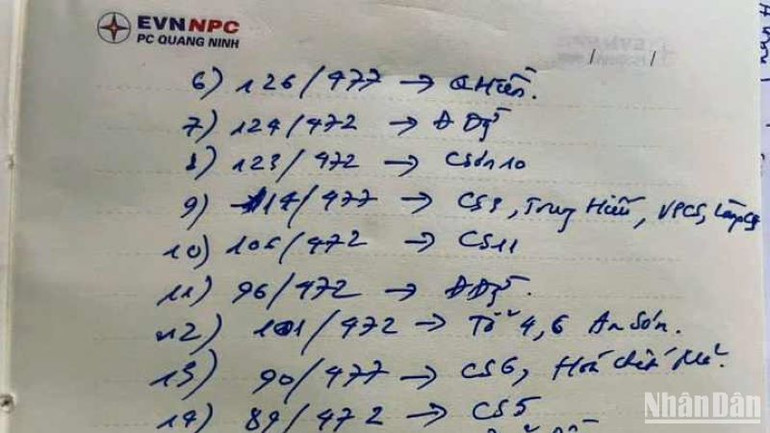 EVNNPC
PC QUANG NINH
6) 126/477 → QHiển.
7) 124/472 → Đ Dỹ
8) 123/472 → CSơn 10
9) 114/477 → CS9, Trung Hiếu, VPCS,
10) 106/472 → CS11
11) 96/472 → ĐDỹ.
12) 101/472 → Tổ 4,6 An Sơn.
13) 90/477 → CS6, Hoá chất Mỏ.
14) 89/472 → CS5
NhânDân